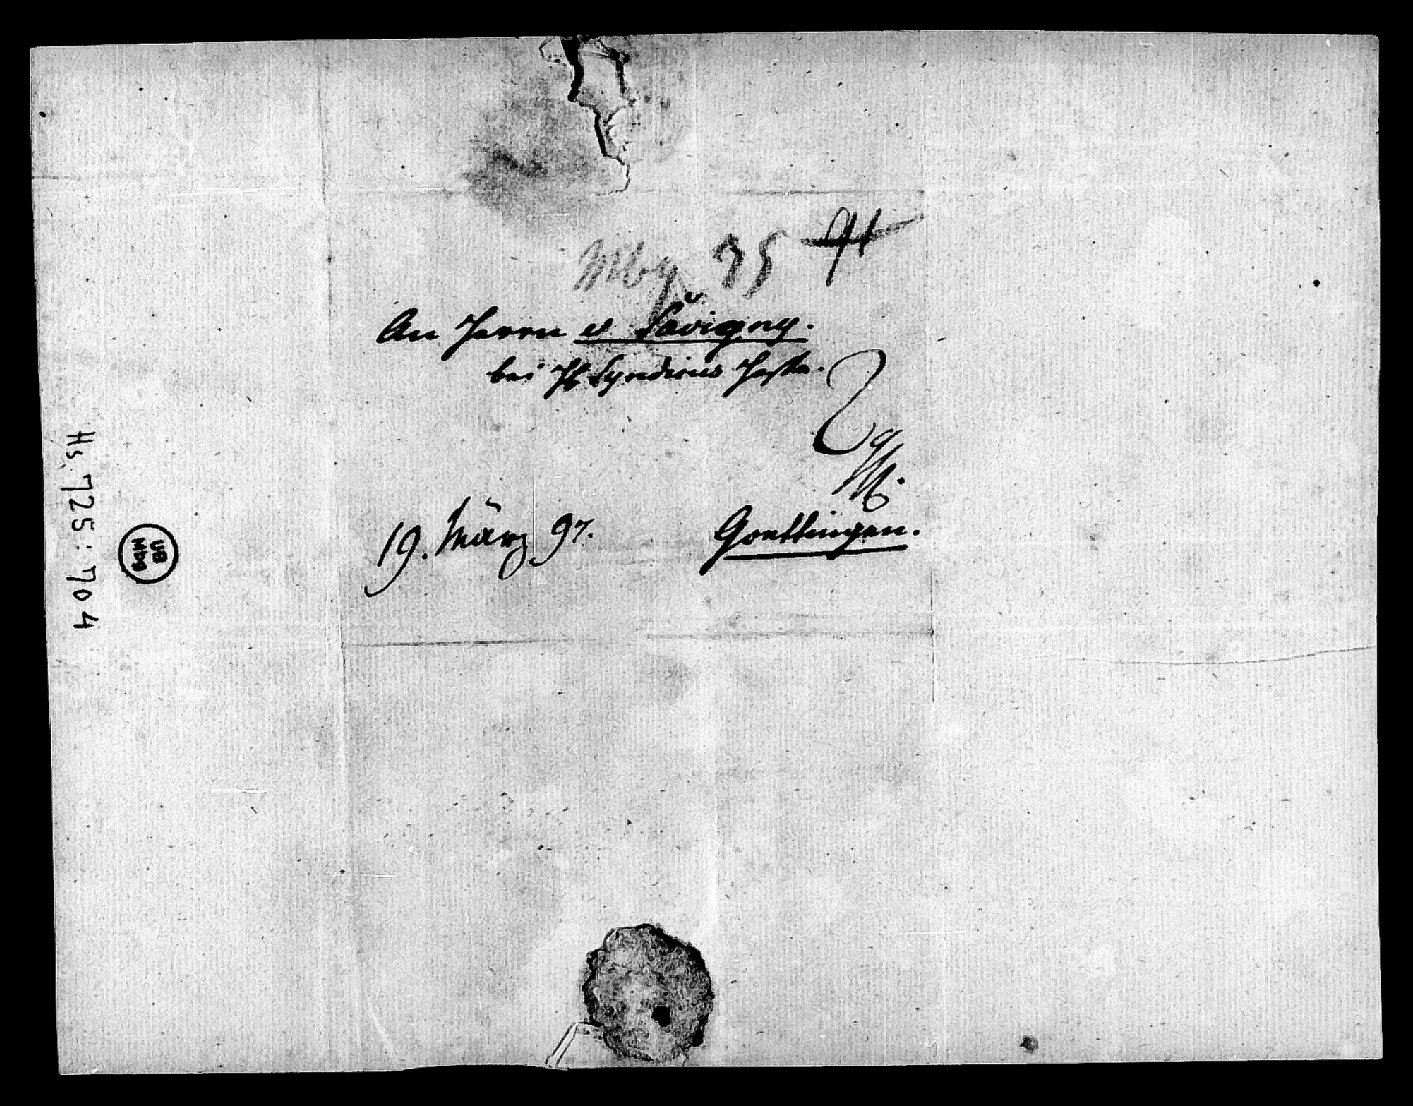 Mbg 75 
An Herrn v Savigny.
bei H. Syndicus Hesse.
19. März 97.
Goettingen.
Hs. 725:704
UB
MBG